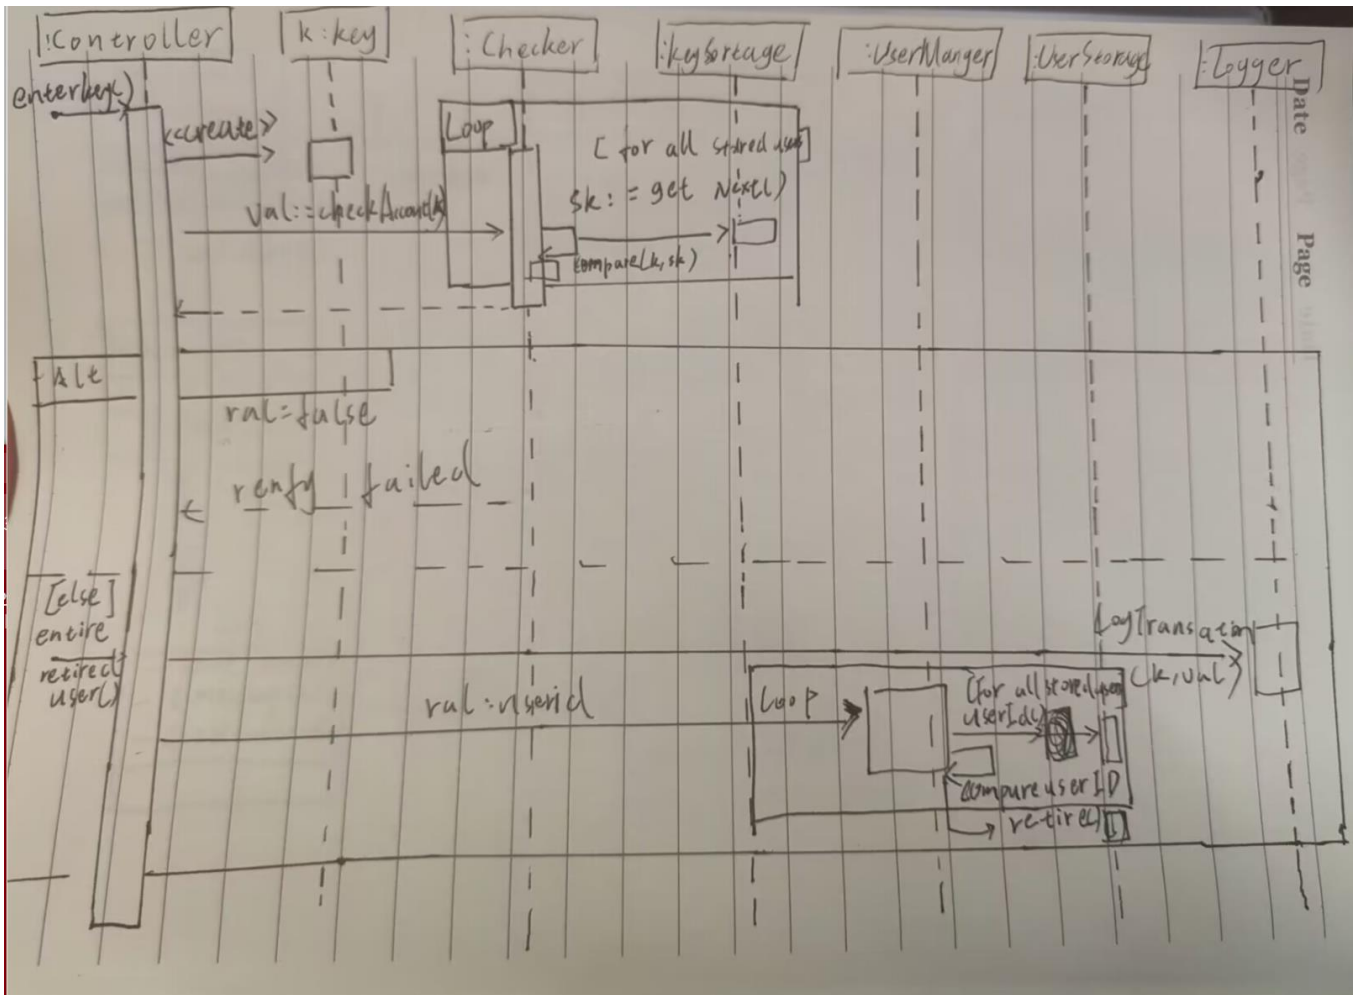 :Controller
k:key
:Checker
:keySortage
:UserManger
:UserStorage
:Logger
Date
Page
enterkey()
<<create>>
Loop
[for all stored users]
sk:=get Next()
val::=checkAccount(k)
compare(k,sk)
Alt
val=false
failed
[else]
entire
retired
user()
LogTransation
(k,val)
val:=userid
Loop
[for all stored user]
userId()
compare userID
retire()